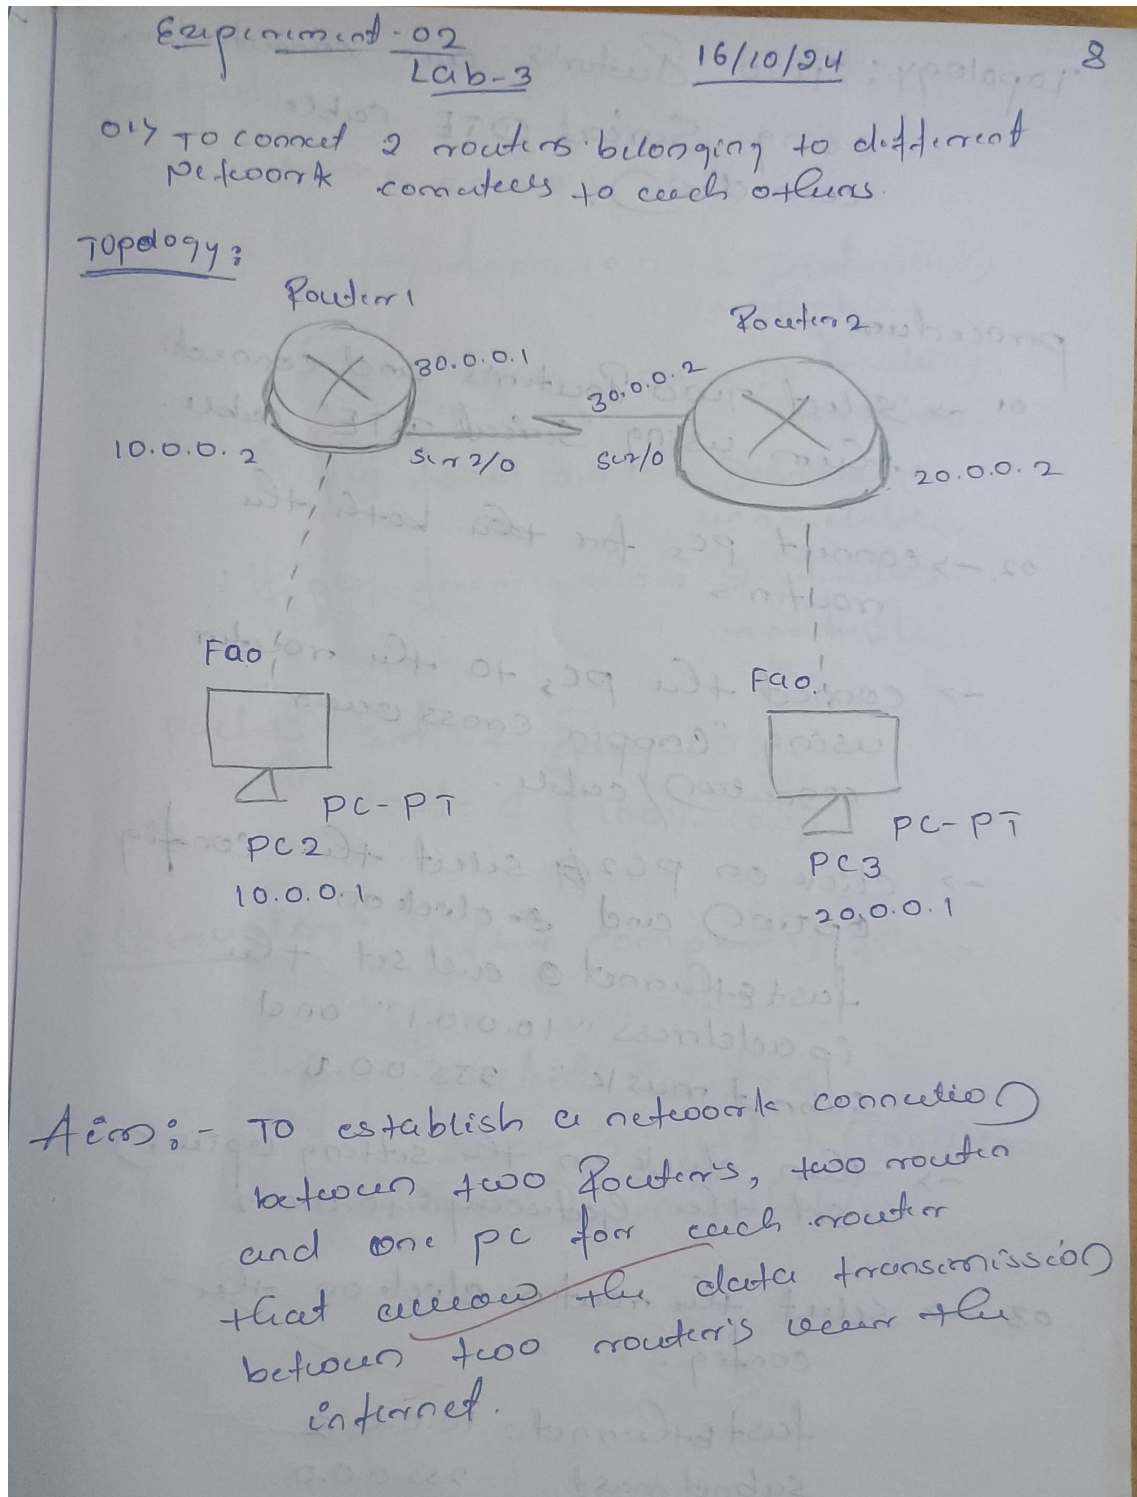 Experiment-02
Lab-3
16/10/24
8
01> To connect 2 routers belonging to different
network computers to each others.
Topology:
Router1
Router2
30.0.0.1
30.0.0.2
10.0.0.2
Ser2/0
Se2/0
20.0.0.2
Fa0
Fa0
PC-PT
PC-PT
PC2
PC3
10.0.0.1
20.0.0.1
Aim:- To establish a network connection
between two Router's, two router
and one pc for each router
that allow the data transmission
between two router's over the
internet.